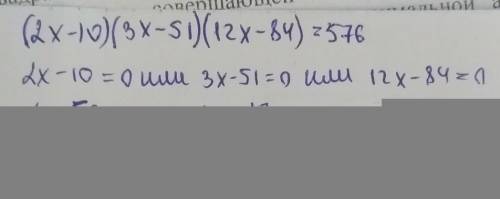 совершающей
(2x-10)(3x-51)(12x-84)=576
2x-10=0 или 3x-51=0 или 12x-84=0